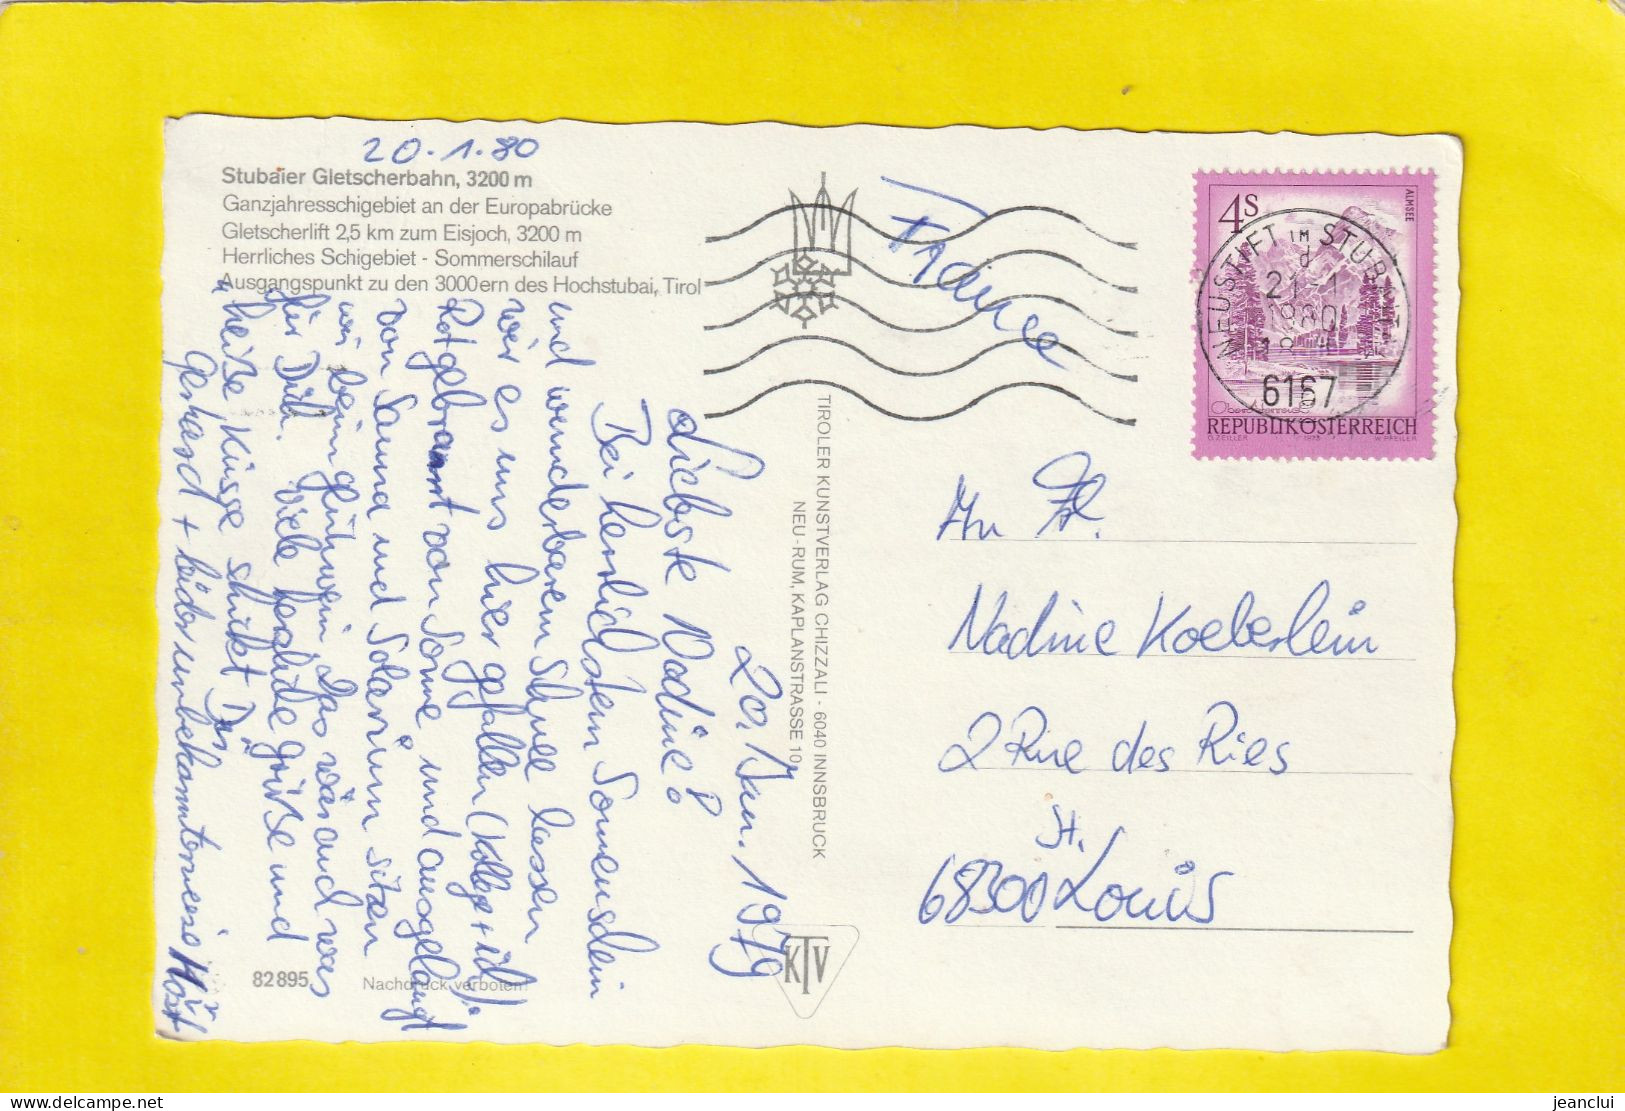 20.1.80
Stubaier Gletscherbahn, 3200 m
Ganzjahresschigebiet an der Europabrücke
Gletscherlift 2,5 km zum Eisjoch, 3200 m
Herrliches Schigebiet - Sommerschilauf
Ausgangspunkt zu den 3000ern des Hochstubai, Tirol
20. Jan. 1979
Liebste Nadine!
Bei herrlichstem Sonnenschein
und wunderbarem Schnee lassen
wir es uns hier gefallen (Kollege + ich).
Rotgebrannt von Sonne und ausgelaugt
von Sauna und Solarium sitzen
wir beim Glühwein. Das wär auch was
für Dich. Viele herzliche Grüße und
heiße Küsse schickt Dir
Gerhard + leider unbekannterweise Horst
82895
Nachdruck verboten!
TIROLER KUNSTVERLAG CHIZZALI - 6040 INNSBRUCK
NEU-RUM, KAPLANSTRASSE 10
KTV
France
4S
ALMSEE
REPUBLIK ÖSTERREICH
O. ZEILLER 1973 W. PFEILER
NEUSTIFT IM STUBAI
d
21.-1.
1980
6167
An Frl.
Nadine Koeberlein
2 Rue des Ries
68300 St. Louis
jeanclui